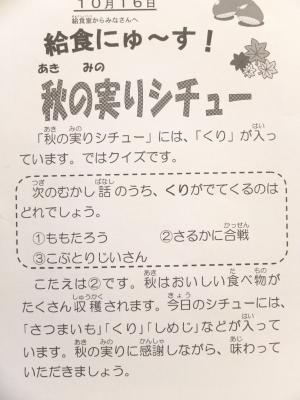 10月16日
給食室からみなさんへ
給食にゅ〜す！
秋の実りシチュー
「秋の実りシチュー」には、「くり」が入っ
ています。ではクイズです。
次のむかし話のうち、くりがでてくるのは
どれでしょう。
①ももたろう　②さるかに合戦
③こぶとりじいさん
こたえは②です。秋はおいしい食べ物が
たくさん収穫されます。今日のシチューには、
「さつまいも」「くり」「しめじ」などが入って
います。秋の実りに感謝しながら、味わって
いただきましょう。